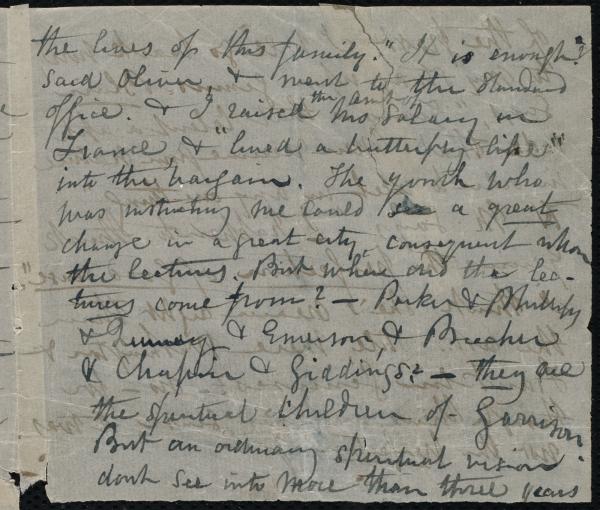 the lives of this family." "It is enough"
said Oliver, & went to the Standard
office. & I raised the amt of his Salary in
France, & "lived a butterfly life"
into the bargain. The youth who
was instructing me could see a great
change in a great city, consequent upon
the lectures. But where did the lec-
tures come from? — Parker & Phillips
& Quincy & Emerson, & Beecher
& Chapin & Giddings? — they are
the spiritual children of Garrison.
But an ordinary spiritual vision
dont see into more than three years